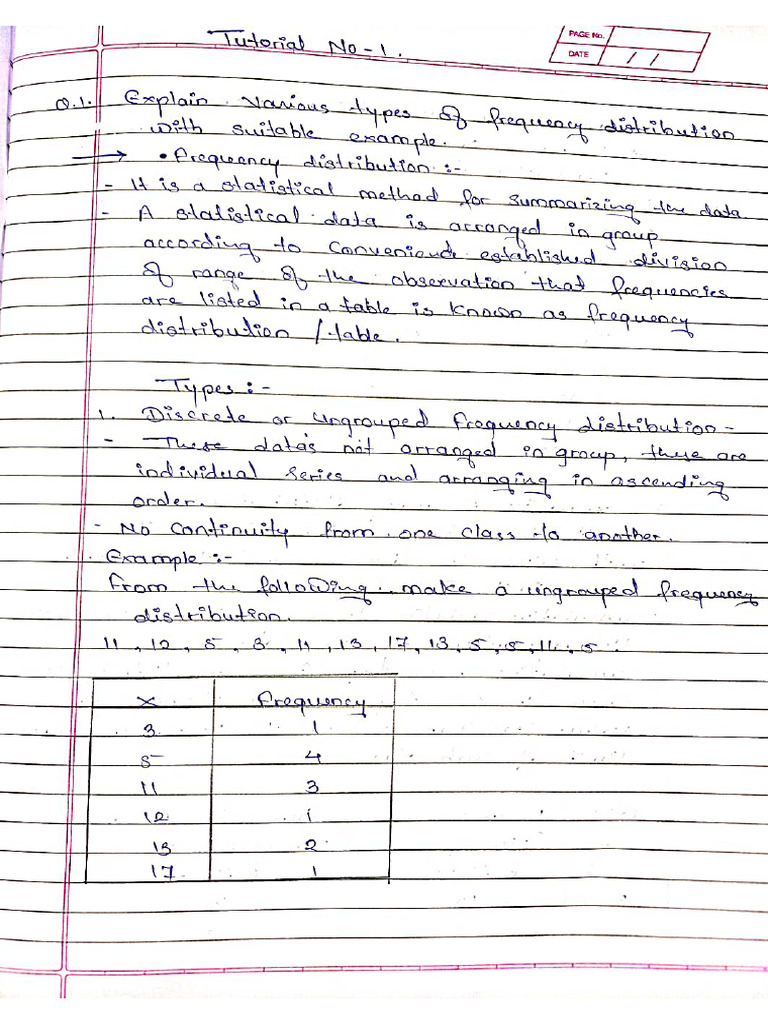 Tutorial No-1.
PAGE No.
DATE / /
Q.1. Explain various types of frequency distribution
with suitable example.
→ • frequency distribution :-
- It is a statistical method for summarizing the data
- A statistical data is arranged in group
according to established division
of range of the observation that frequencies
are listed in a table is known as frequency
distribution / table.
Types :-
1. Discrete or ungrouped frequency distribution -
- These data's not arranged in group, these are
individual series and arranging in ascending
order.
- No continuity from one class to another.
. Example :-
from the following make a ungrouped frequency
distribution.
11, 12, 5, 3, 11, 13, 17, 13, 5, 5, 11, 5
x frequency
3 1
5 4
11 3
12 1
13 2
17 1